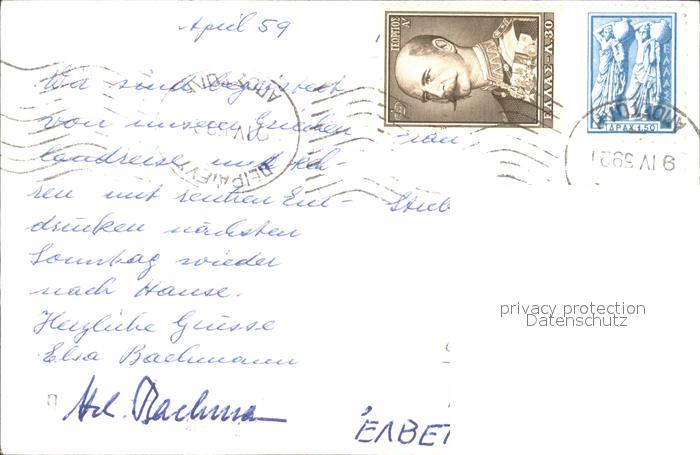 April 59
Wir sind begeistert
von unserer Griechen
landreise und keh-
ren mit reichen Ein-
drücken nächsten
Sonntag wieder
nach Hause.
Herzliche Grüsse
Elsa Bachmann
Bachma
ΓΕΩΡΓΙΟΣ
Α'
ΕΛΛΑΣ-Λ.30
ΕΛΛΑΣ
ΔΡΑΧ.1.50
ΠΕΙΡΑΙΕΥΣ
9 IV 59 21
privacy protection
Datenschutz
ΈΛΒΕΤ